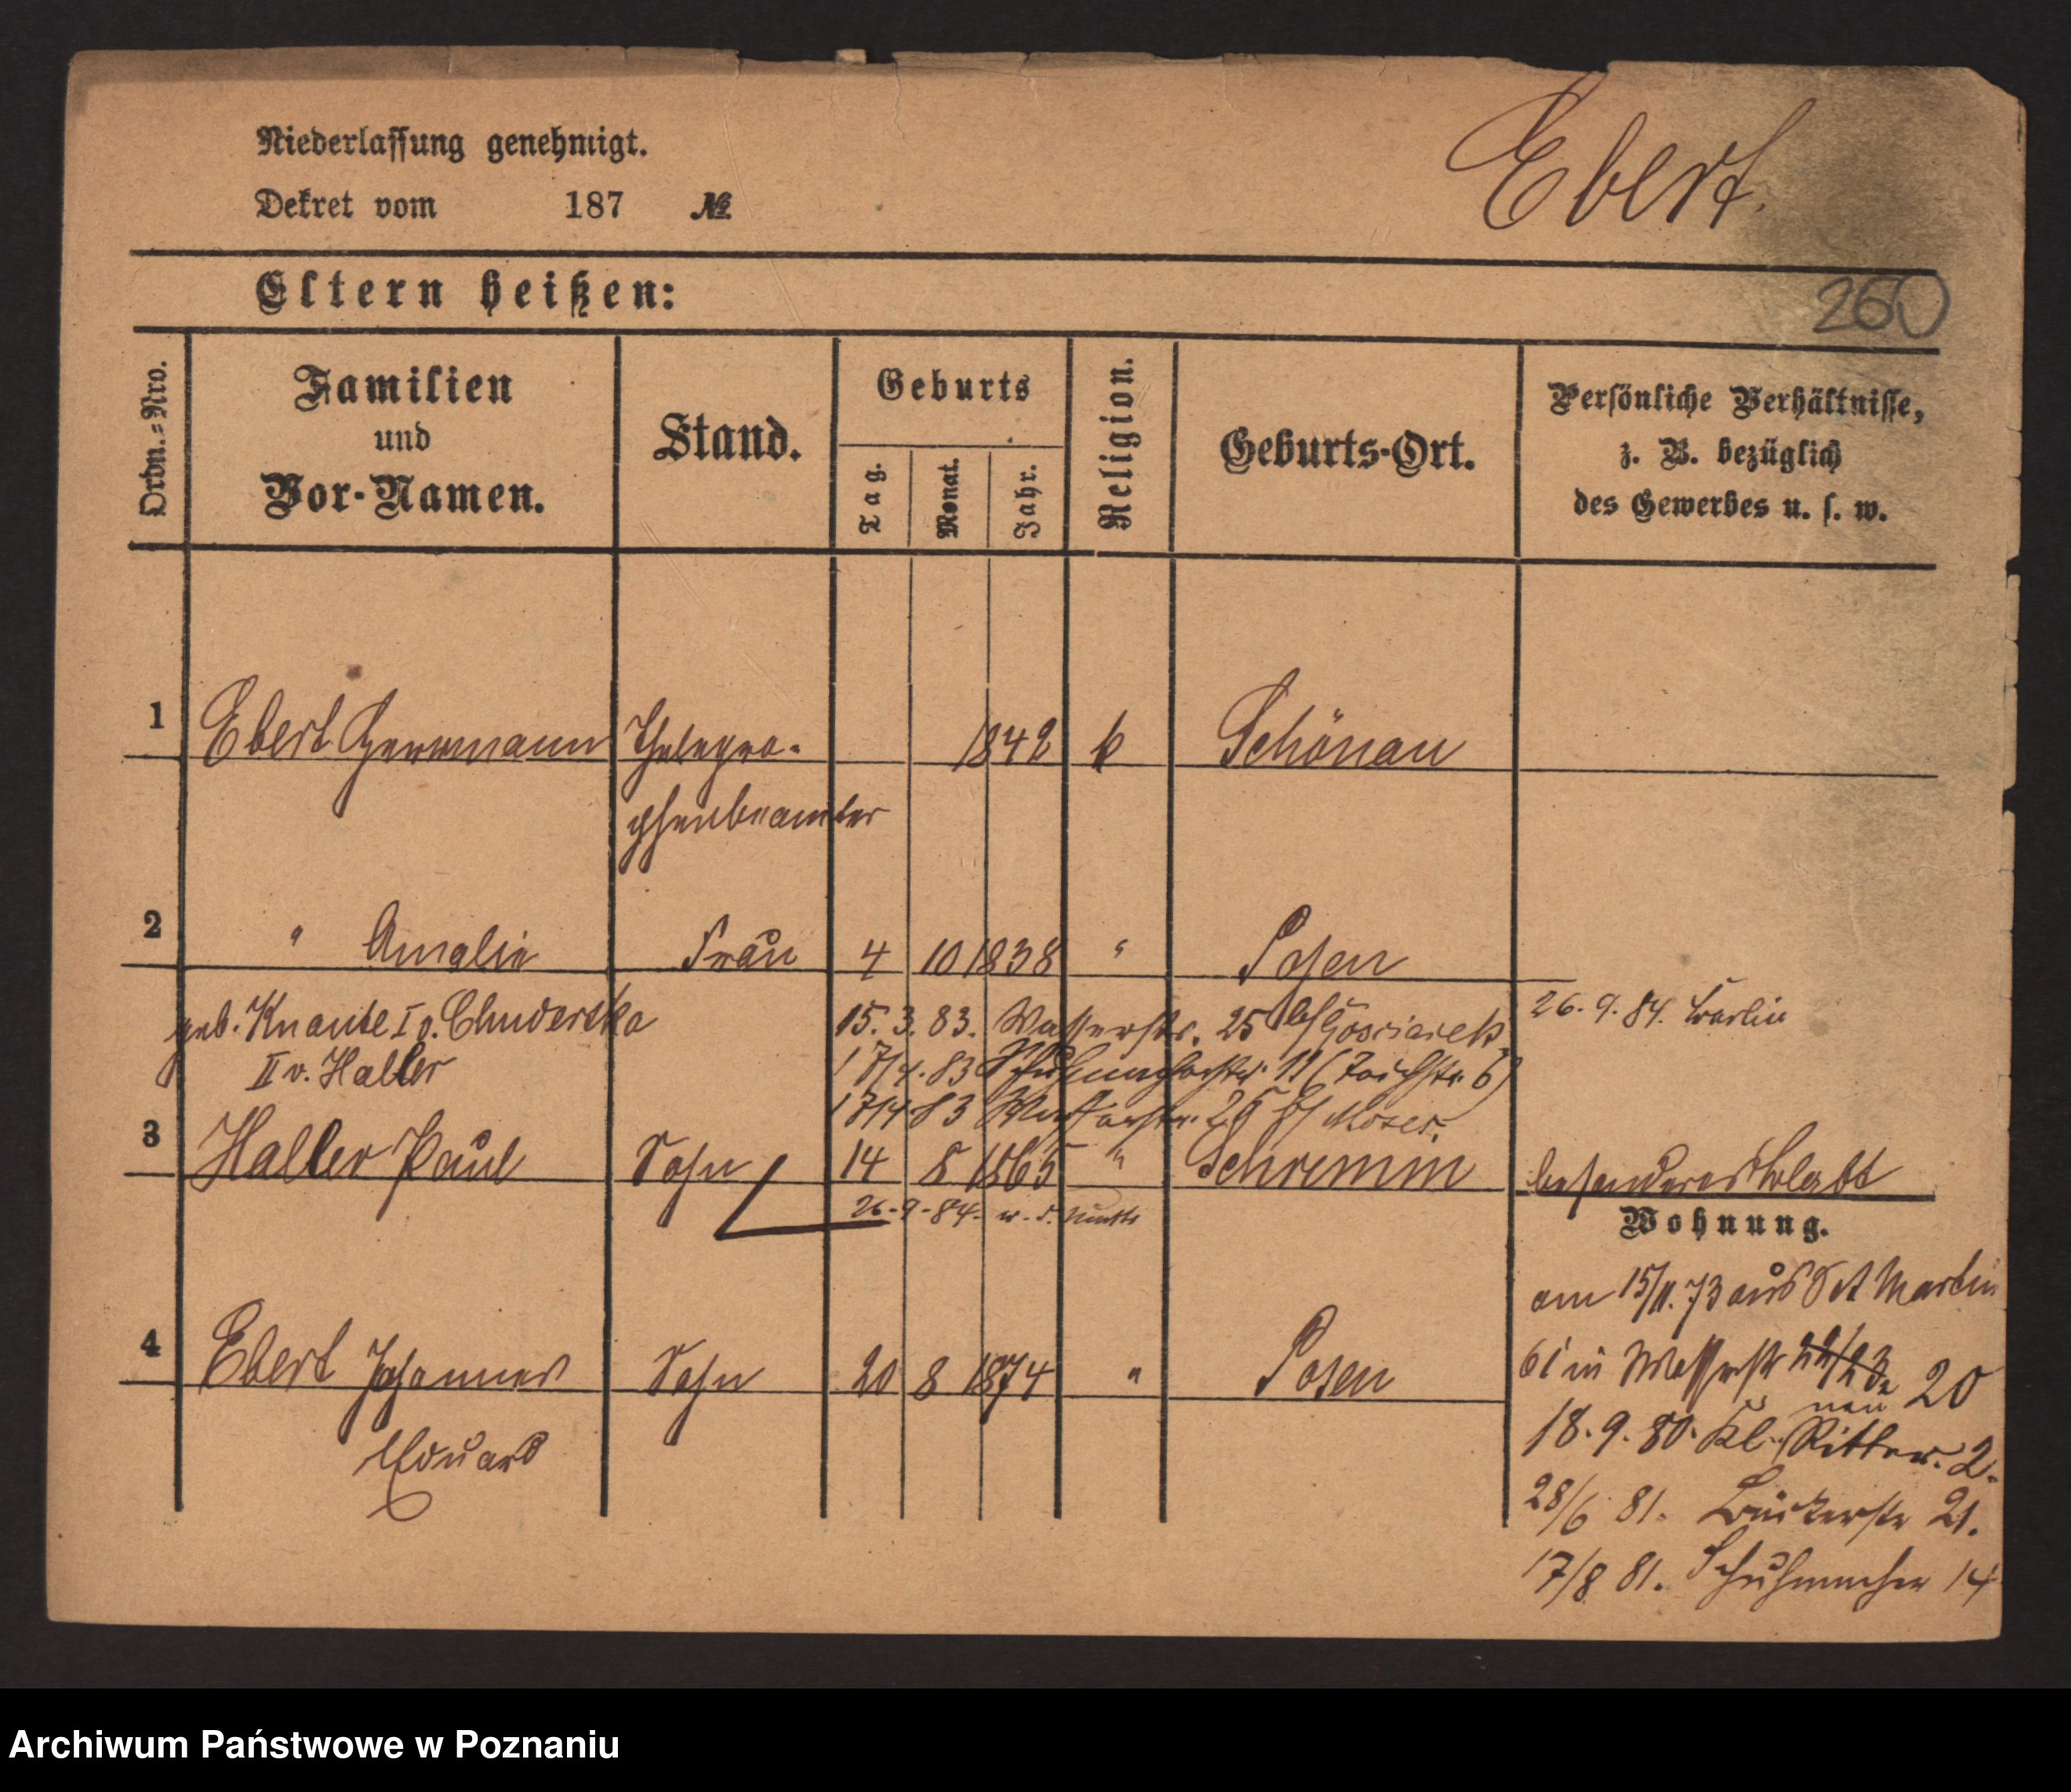 Niederlassung genehmigt.
Dekret vom 187 №
Ebert.
Eltern heißen:
260
Ordn.=Nro.
Familien
und
Vor-Namen.
Stand.
Geburts
Tag.
Monat.
Jahr.
Religion.
Geburts-Ort.
Persönliche Verhältnisse,
z. B. bezüglich
des Gewerbes u. s. w.
1 Ebert Herrmann Thelegra- 1842 k Schönau
phenbeamter
2 " Amalie Frau 4 10 1838 " Posen
geb. Knaute I v. Chudertka
II v. Haller
15. 3. 83. Wasserstr. 25 bei
26. 9. 84. Berlin
17/4. 83 Schuhmacherstr. 11 (Teichstr. 6)
17/4 83 Wasserstr. 25 bei Moses.
3 Haller Paul Sohn 14 8 1865 " Schrimm besonderes Blatt
26-9-84-
Wohnung.
am 15/11. 73 aus St Martin
61 in Wasserstr 22/23 20
neu
4 Ebert Johannes Sohn 20 8 1874 " Posen
Eduard
18. 9. 80. Kl. Ritter. 2.
28/6 81. Bäckerstr 21.
17/8 81. Schuhmacher 14
Archiwum Państwowe w Poznaniu